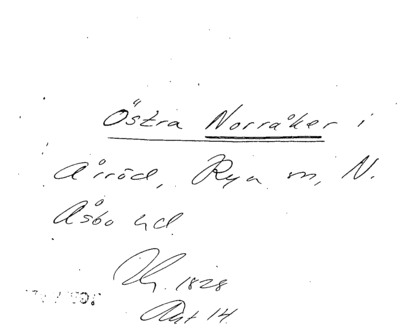 Östra Norråker i
Årröd, Rya sn, N.
Åsbo hd.
1828
Akt 14.